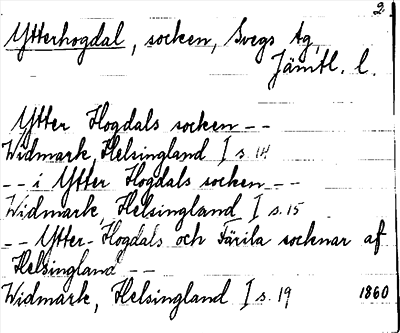 2.
Ytterhogdal, socken, Svegs tg,
Jämtl. l.
Ytter Hogdals socken --
Widmark, Helsingland I s. 14
-- i Ytter Hogdals socken --
Widmark, Helsingland I s. 15
-- Ytter-Hogdals och Färila socknar af
Helsingland --
Widmark, Helsingland I s. 19 1860